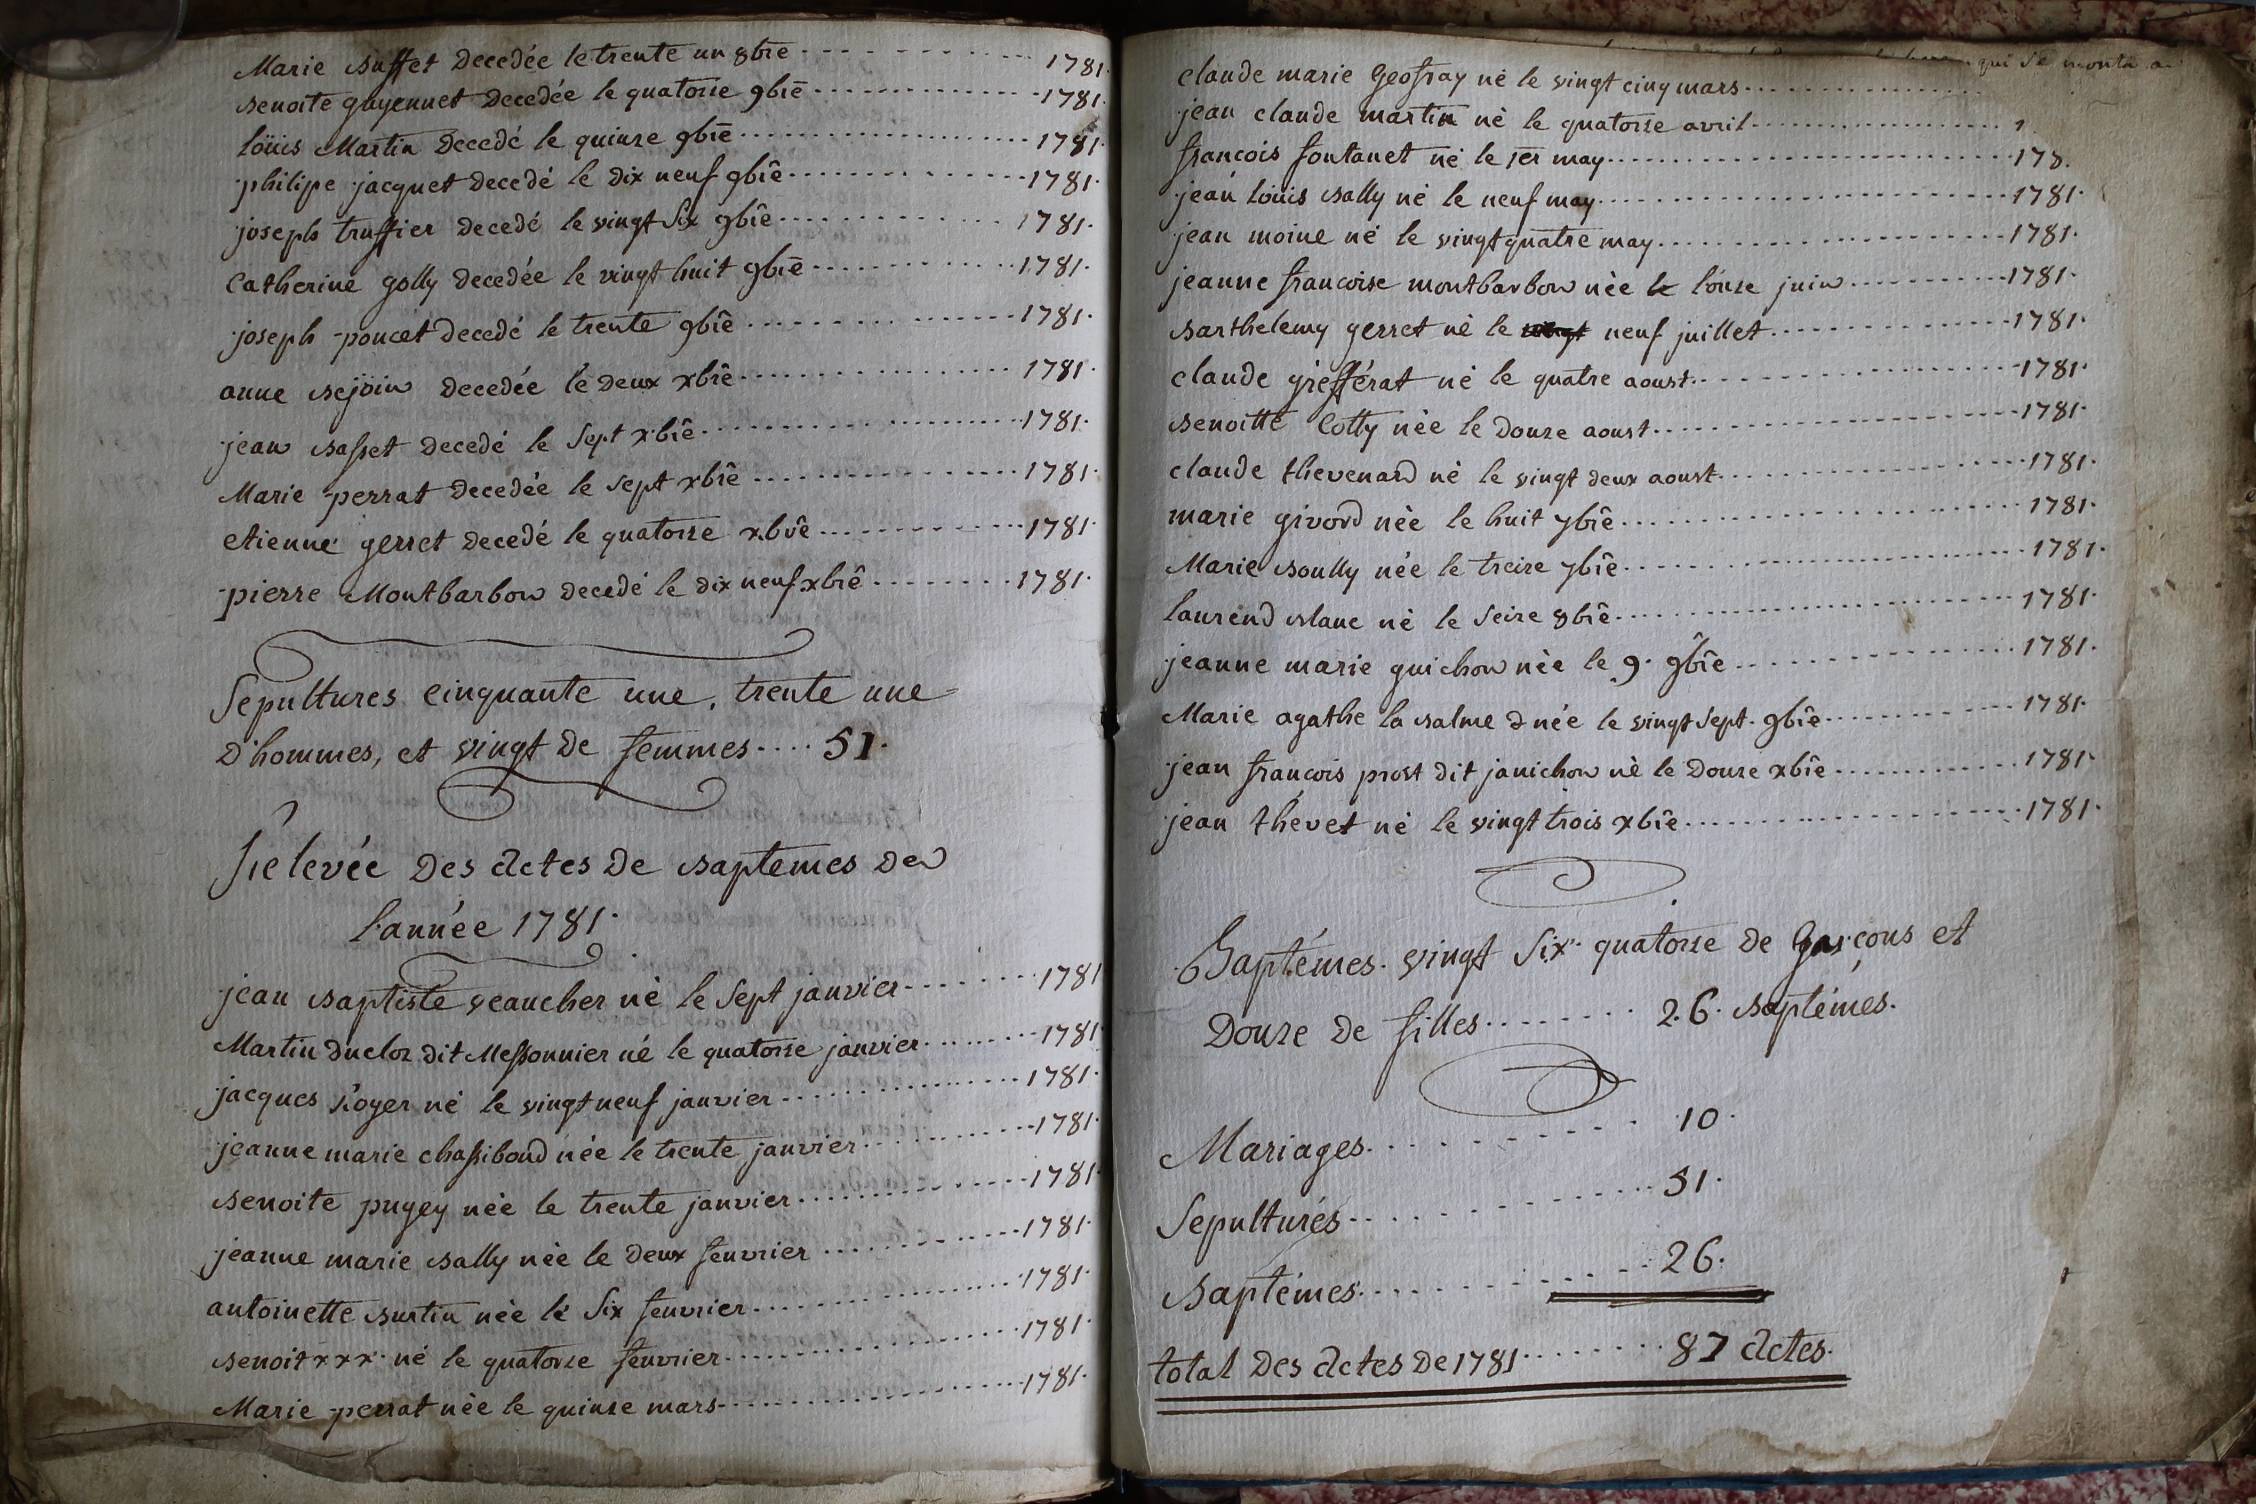 Marie Buffet decedée le trente un 8bre 1781.
Benoite guyennet decedée le quatorze 9bre 1781.
loüis Martin decedé le quinze 9bre 1781
philipe jacquet decedé le dix neuf 9bre 1781.
joseph truffier decedé le vingt six 9bre 1781.
Catherine golly decedée le vingt huit 9bre 1781.
joseph poncet decedé le trente 9bre 1781.
anne Bejoin decedée le deux xbre 1781.
jean Basset decedé le sept xbre 1781.
Marie perrat decedée le sept xbre 1781.
etienne gerret decedé le quatorze xbre 1781.
pierre Montbarbon decedé le dix neuf xbre 1781.
Sepultures cinquante une, trente une
d'hommes, et vingt de femmes 51.
Relevée des actes de Baptemes de
l'année 1781.
jean Baptiste veaucher né le sept janvier 1781
Martin duclos dit Messonnier né le quatorze janvier 1781
jacques Royer né le vingt neuf janvier 1781.
jeanne marie chassiboud née le trente janvier 1781.
Benoite pugey née le trente janvier 1781.
jeanne marie Bally née le deux fenvrier 1781.
antoinette Burtin née le six fenvrier 1781.
Benoit xxx né le quatorze fenvrier 1781.
Marie perrat née le quinze mars 1781.
qui se monta a
claude marie Geofray né le vingt cinq mars
jean claude martin né le quatorze avril 1
francois fontanet né le 1er may 178.
jean loüis Bally né le neuf may 1781.
jean moine né le vingt quatre may 1781.
jeanne francoise montbarbon née le l'onze juin 1781.
Barthelemy gerret né le vingt neuf juillet 1781.
claude giefférat né le quatre aoust 1781.
Benoitte Cotty née le douze aoust 1781.
claude thevenard né le vingt deux aoust 1781.
marie givord née le huit 7bre 1781.
Marie Boully née le treize 7bre 1781.
laurend Blanc né le seize 8bre 1781.
jeanne marie guichon née le 9. 9bre 1781.
Marie agathe la Balme d née le vingt sept 9bre 1781.
jean francois prost dit janichon né le douze xbre 1781.
jean thévet né le vingt trois xbre 1781.
Baptémes vingt six. quatorze de Garçons et
douze de filles 26. Baptémes.
Mariages 10.
Sepultures 51.
Baptémes 26.
total des actes de 1781 87 actes.